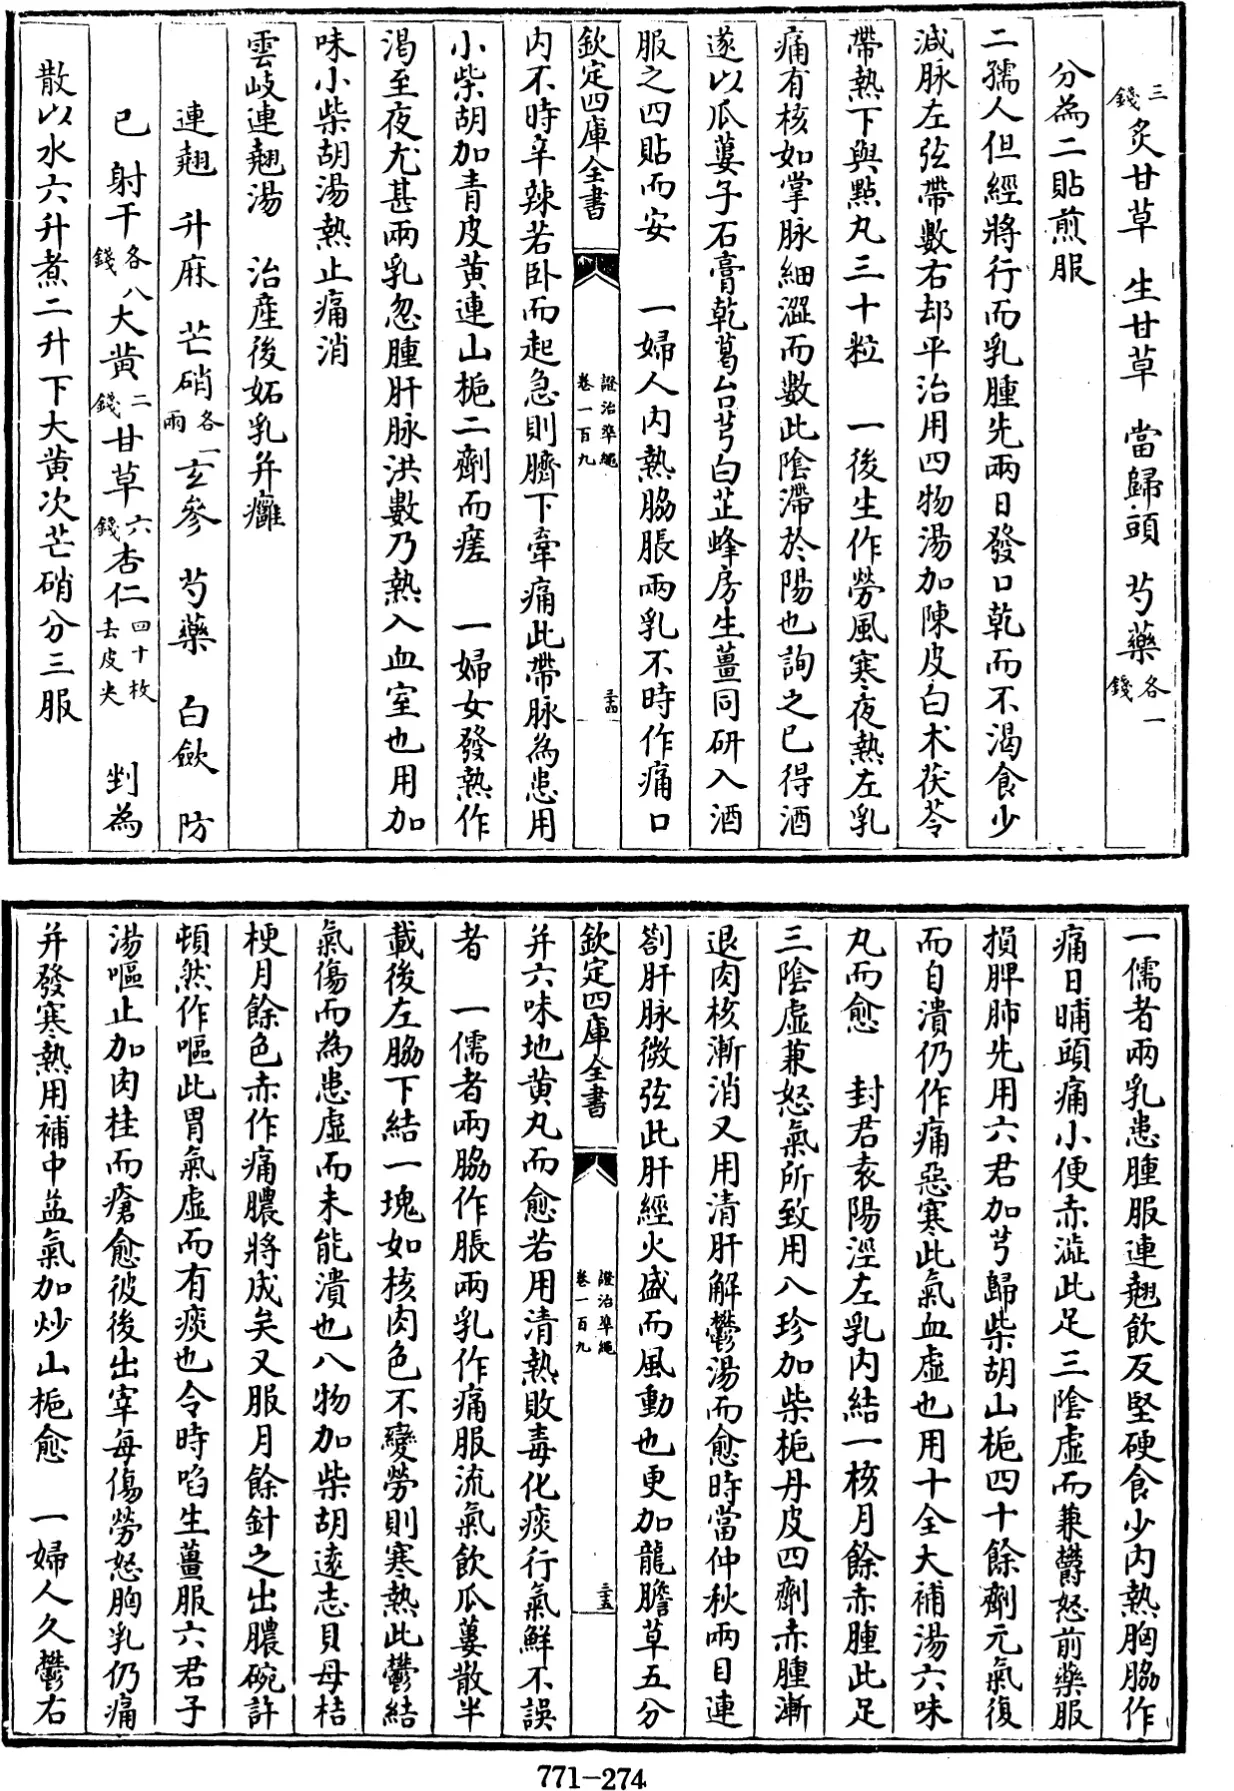 三錢炙甘草　生甘草　當歸頭　芍藥各一錢
分為二貼煎服
二孺人但經將行而乳腫先兩日發口乾而不渴食少
減脉左弦帶數右却平治用四物湯加陳皮白术茯苓
帶熱下與點丸三十粒　一後生作勞風寒夜熱左乳
痛有核如掌脉細澀而數此陰滯於陽也詢之已得酒
遂以瓜蔞子石膏乾葛台芎白芷蜂房生薑同研入酒
服之四貼而安　一婦人内熱脇脹兩乳不時作痛口
欽定四庫全書
證治準繩
卷一百九
三十四
内不時辛辣若卧而起急則臍下牽痛此帶脉為患用
小柴胡加青皮黄連山梔二劑而瘥　一婦女發熱作
渴至夜尤甚兩乳忽腫肝脉洪數乃熱入血室也用加
味小柴胡湯熱止痛消
雲岐連翹湯　治產後妬乳并癰
連翹　升麻　芒硝各一兩　玄參　芍藥　白歛　防
已　射干各八錢　大黄二錢　甘草六錢　杏仁四十枚去皮尖　剉為
散以水六升煮二升下大黄次芒硝分三服
一儒者兩乳患腫服連翹飲反堅硬食少内熱胸脇作
痛日晡頭痛小便赤澁此足三陰虛而兼鬱怒前藥服
損脾肺先用六君加芎歸柴胡山梔四十餘劑元氣復
而自潰仍作痛惡寒此氣血虛也用十全大補湯六味
丸而愈　封君袁陽涇左乳内結一核月餘赤腫此足
三陰虛兼怒氣所致用八珍加柴梔丹皮四劑赤腫漸
退肉核漸消又用清肝解鬱湯而愈時當仲秋兩目連
劄肝脉微弦此肝經火盛而風動也更加龍膽草五分
欽定四庫全書
證治準繩
卷一百九
三十五
并六味地黄丸而愈若用清熱敗毒化痰行氣鮮不誤
者　一儒者兩脇作脹兩乳作痛服流氣飲瓜蔞散半
載後左脇下結一塊如核肉色不變勞則寒熱此鬱結
氣傷而為患虛而未能潰也八物加柴胡遠志貝母桔
梗月餘色赤作痛膿將成矣又服月餘針之出膿碗許
頓然作嘔此胃氣虛而有痰也令時啗生薑服六君子
湯嘔止加肉桂而瘡愈彼後出宰每傷勞怒胸乳仍痛
并發寒熱用補中益氣加炒山梔愈　一婦人久鬱右
771-274